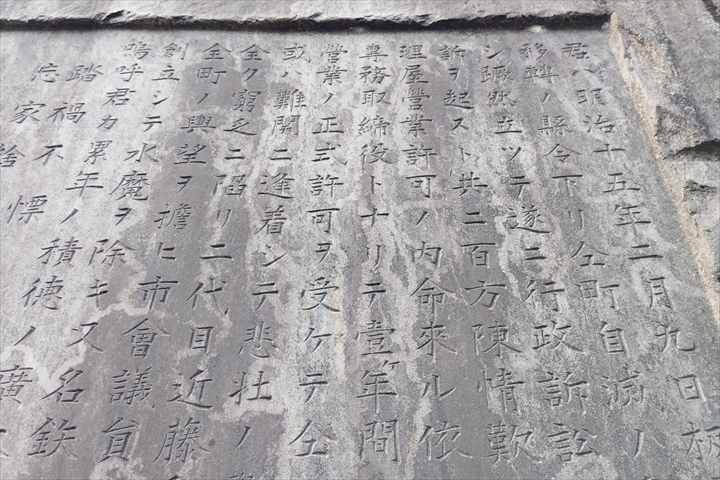 君ハ明治十五年二月九日栃
移轉ノ縣令下リ仝町自滅ノ
シ蹶然立ツテ遂ニ行政訴訟
訴ヲ起スト共ニ百方陳情歎
理屋營業許可ノ内命來ル依
專務取締役トナリテ壹ヶ年間
營業ノ正式許可ヲ受ケテ仝
或ノ難関ニ逢着シテ悲壮ノ
全ク窮乏ニ陥リ二代目近藤
仝町ノ輿望ヲ擔ヒ市會議員
創立シテ水魔ヲ除キ又名鉄
嗚呼君カ累年ノ積徳ノ廣
踏禍不慄
忘家捨